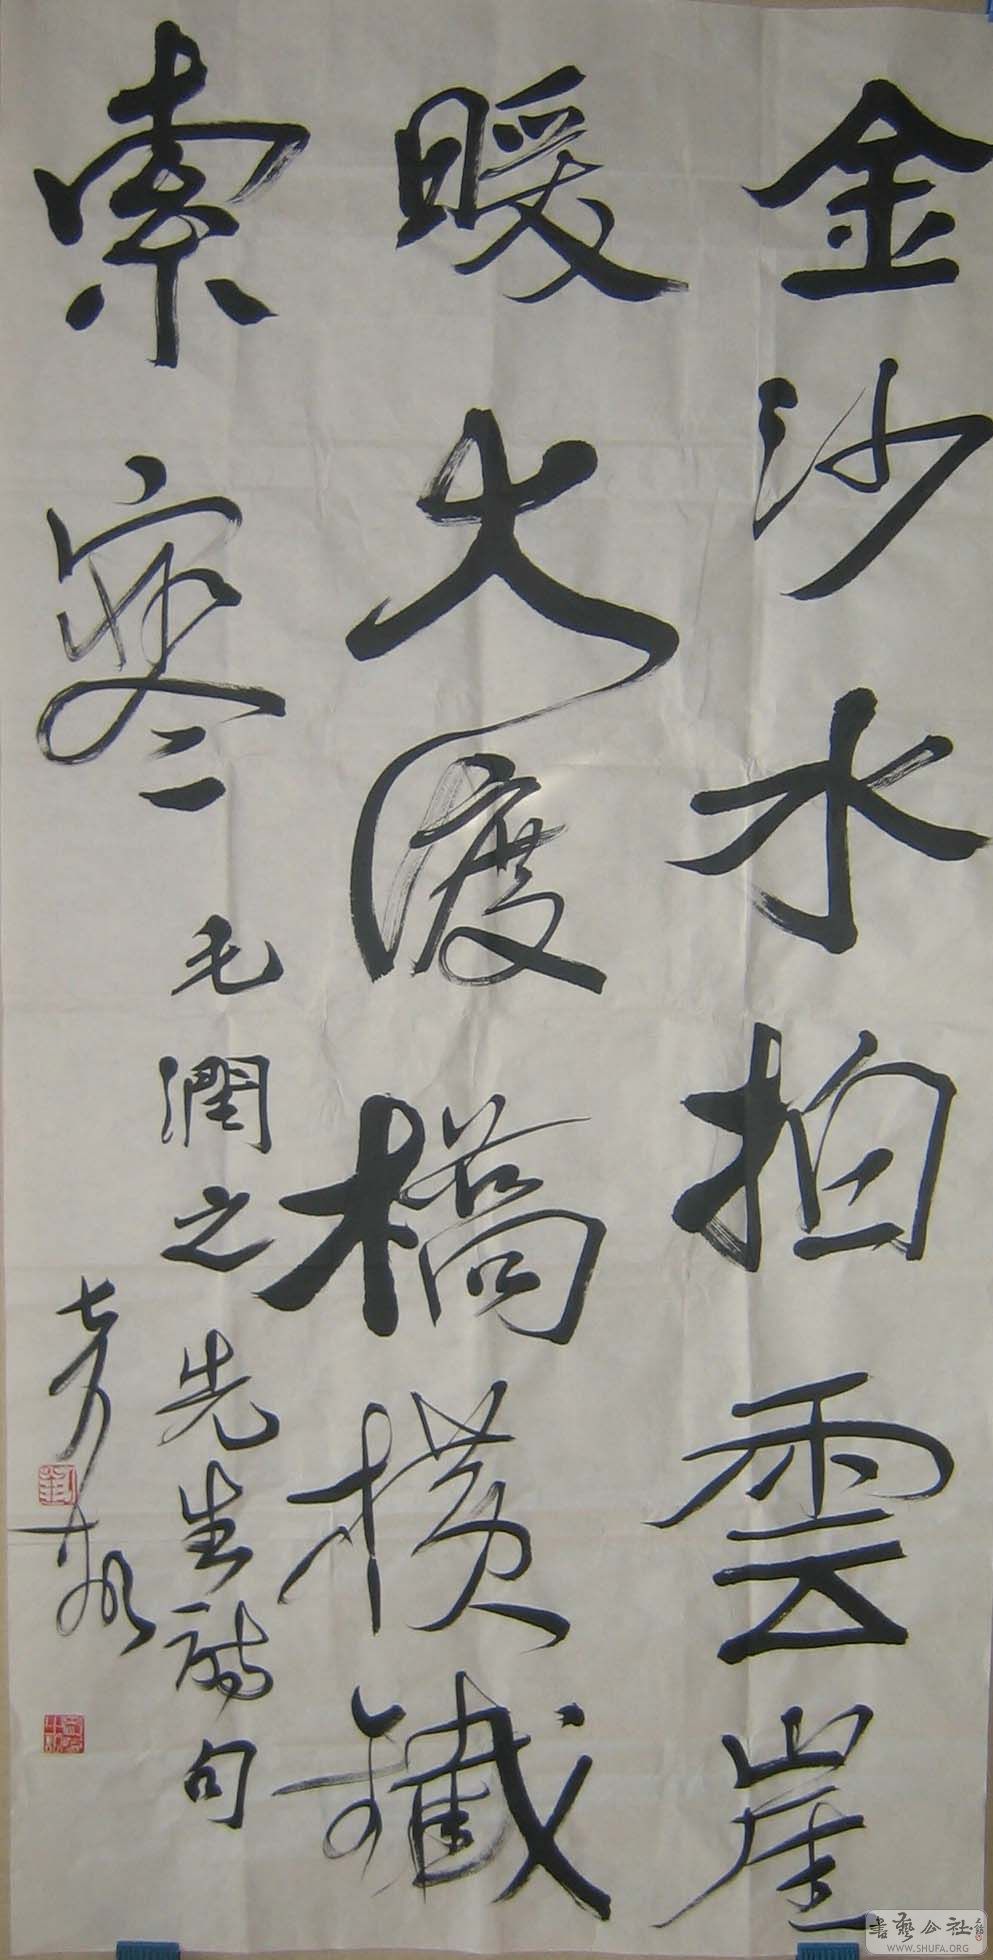 金沙水拍雲崖
暖大渡橋橫鐵
索寒
毛潤之先生詩句
書藝公社
WWW.SHUFA.ORG